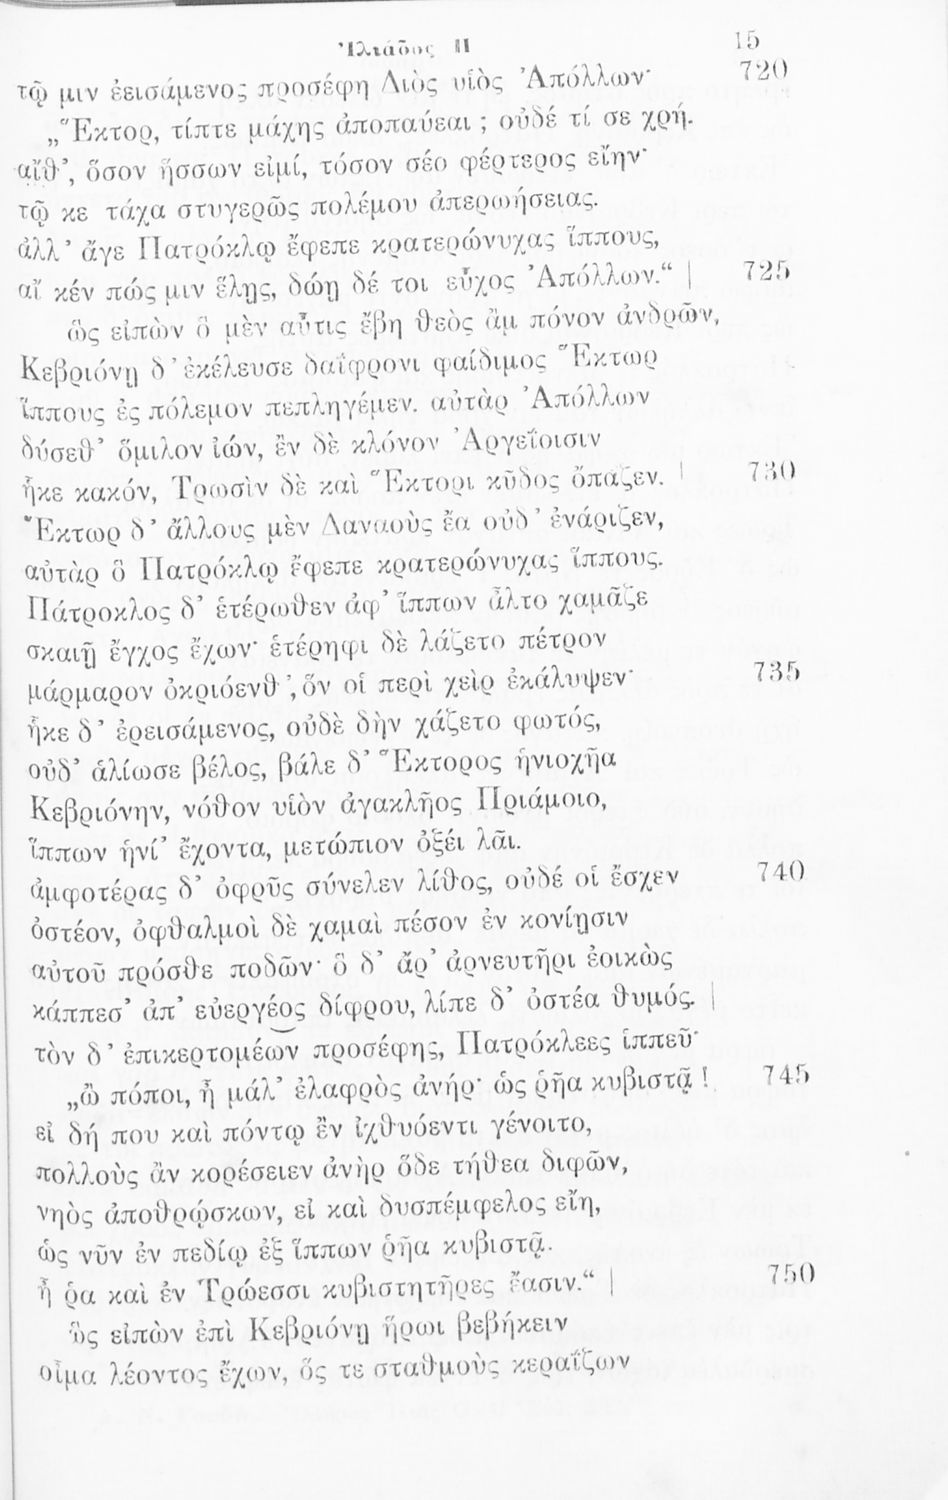 Ἰλιάδος Π 15
τῷ μιν ἐεισάμενος προσέφη Διὸς υἱὸς Ἀπόλλων· 720
„Ἕκτορ, τίπτε μάχης ἀποπαύεαι; οὐδέ τί σε χρή.
αἴθ’, ὅσον ἥσσων εἰμί, τόσον σέο φέρτερος εἴην·
τῷ κε τάχα στυγερῶς πολέμου ἀπερωήσειας.
ἀλλ’ ἄγε Πατρόκλῳ ἔφεπε κρατερώνυχας ἵππους,
αἴ κέν πώς μιν ἕλῃς, δώῃ δέ τοι εὖχος Ἀπόλλων.“ | 725
ὣς εἰπὼν ὃ μὲν αὖτις ἔβη θεὸς ἂμ πόνον ἀνδρῶν,
Κεβριόνῃ δ’ ἐκέλευσε δαΐφρονι φαίδιμος Ἕκτωρ
ἵππους ἐς πόλεμον πεπληγέμεν. αὐτὰρ Ἀπόλλων
δύσεθ’ ὅμιλον ἰών, ἒν δὲ κλόνον Ἀργεΐοισιν
ἧκε κακόν, Τρωσὶν δὲ καὶ Ἕκτορι κῦδος ὄπαζεν. | 730
Ἕκτωρ δ’ ἄλλους μὲν Δαναοὺς ἔα οὐδ’ ἐνάριζεν,
αὐτὰρ ὃ Πατρόκλῳ ἔφεπε κρατερώνυχας ἵππους.
Πάτροκλος δ’ ἑτέρωθεν ἀφ’ ἵππων ἆλτο χαμᾶζε
σκαιῇ ἔγχος ἔχων· ἑτέρηφι δὲ λάζετο πέτρον
μάρμαρον ὀκριόενθ’, ὅν οἱ περὶ χεὶρ ἐκάλυψεν· 735
ἧκε δ’ ἐρεισάμενος, οὐδὲ δὴν χάζετο φωτός,
οὐδ’ ἁλίωσε βέλος, βάλε δ’ Ἕκτορος ἡνιοχῆα
Κεβριόνην, νόθον υἱὸν ἀγακλῆος Πριάμοιο,
ἵππων ἡνί’ ἔχοντα, μετώπιον ὀξέι λᾶι.
ἀμφοτέρας δ’ ὀφρῦς σύνελεν λίθος, οὐδέ οἱ ἔσχεν 740
ὀστέον, ὀφθαλμοὶ δὲ χαμαὶ πέσον ἐν κονίῃσιν
αὐτοῦ πρόσθε ποδῶν· ὃ δ’ ἄρ’ ἀρνευτῆρι ἐοικὼς
κάππεσ’ ἀπ’ εὐεργέος δίφρου, λίπε δ’ ὀστέα θυμός. |
τὸν δ’ ἐπικερτομέων προσέφης, Πατρόκλεες ἱππεῦ·
„ὢ πόποι, ἦ μάλ’ ἐλαφρὸς ἀνήρ· ὡς ῥῆα κυβιστᾷ! 745
εἰ δή που καὶ πόντῳ ἒν ἰχθυόεντι γένοιτο,
πολλοὺς ἂν κορέσειεν ἀνὴρ ὅδε τήθεα διφῶν,
νηὸς ἀποθρῴσκων, εἰ καὶ δυσπέμφελος εἴη,
ὡς νῦν ἐν πεδίῳ ἐξ ἵππων ῥῆα κυβιστᾷ.
ἦ ῥα καὶ ἐν Τρώεσσι κυβιστητῆρες ἔασιν.“ | 750
ὣς εἰπὼν ἐπὶ Κεβριόνῃ ἥρωι βεβήκειν
οἶμα λέοντος ἔχων, ὅς τε σταθμοὺς κεραΐζων